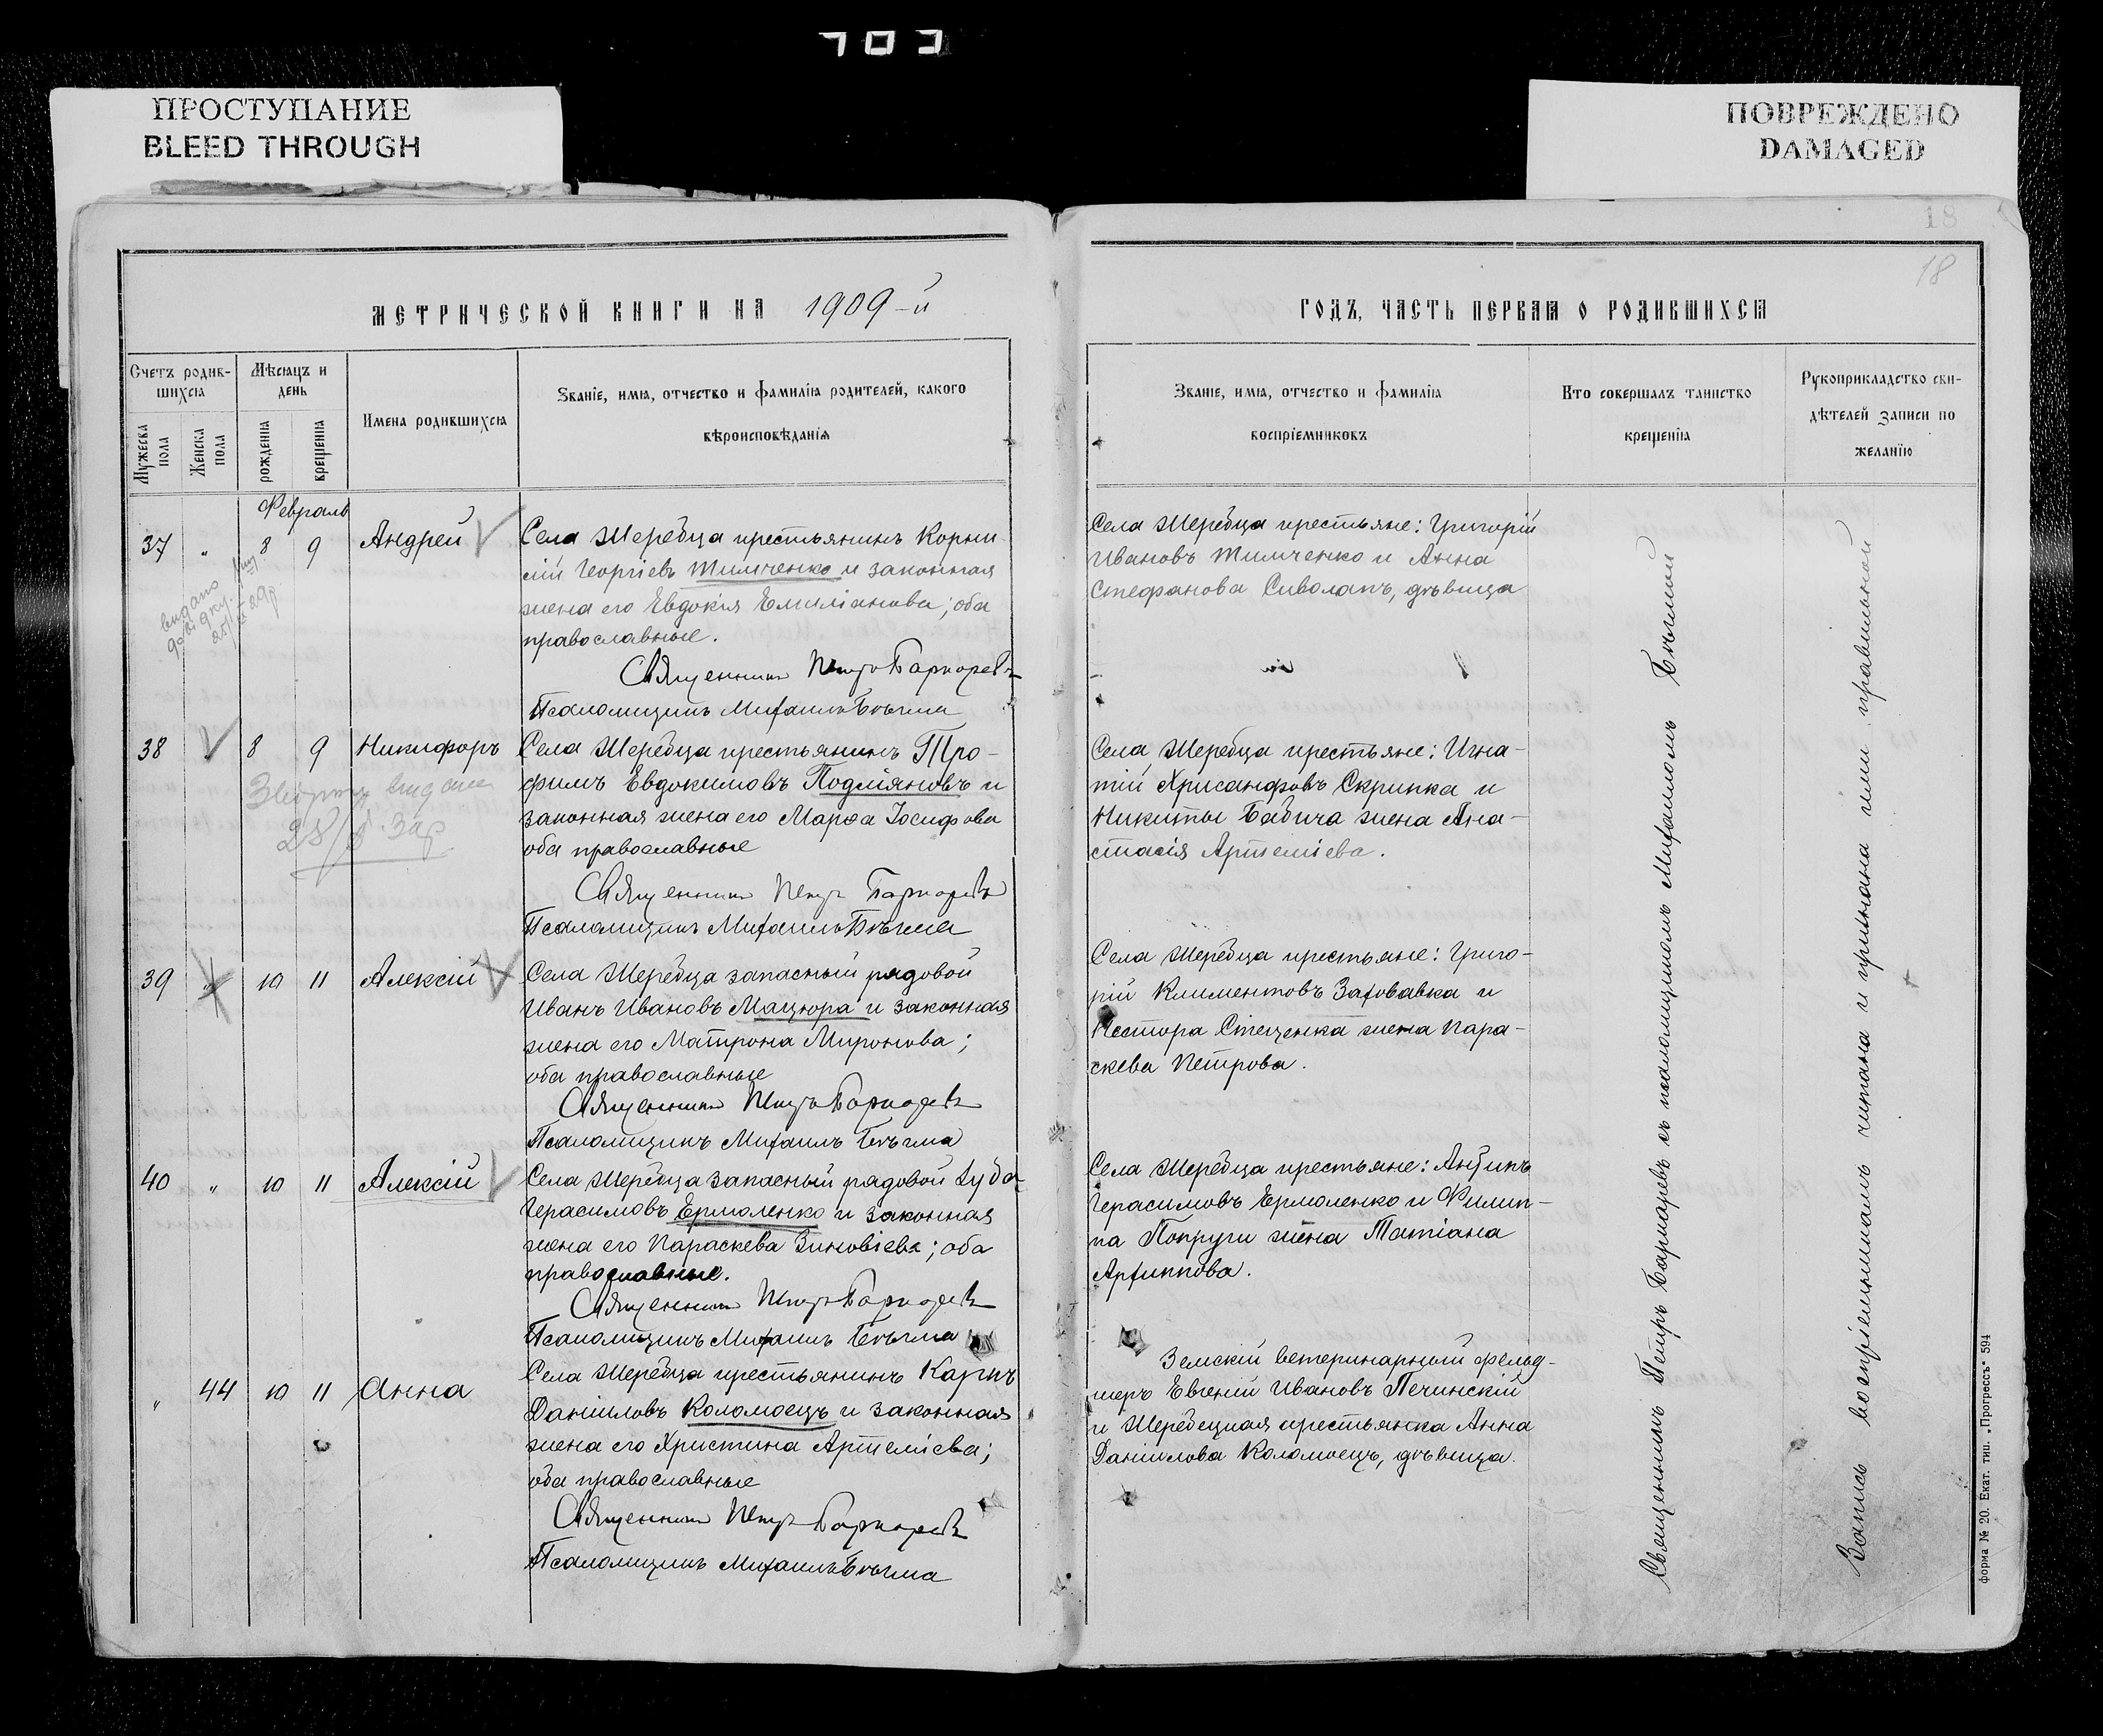 703
ПРОСТУПАНИЕ
BLEED THROUGH
ПОВРЕЖДЕНО
DAMAGED
18
18
МЕТРИЧЕСКОЙ КНИГИ НА 1909-й
ГОДЪ, ЧАСТЬ ПЕРВАЯ О РОДИВШИХСЯ
Счетъ родив-
шихся
Мѣсяцъ и
день
Мужеска
пола
Женска
пола
рожденія
крещенія
Имена родившихся
Званіе, имя, отчество и фамилія родителей, какого
вѣроисповѣданія
Званіе, имя, отчество и фамилія
воспріемниковъ
Кто совершалъ таинство
крещенія
Рукоприкладство сви-
дѣтелей записи по
желанію
Февраль
37 " 8 9 Андрей
Села Жеребца крестьянинъ Корни-
лій Георгіевъ Тимченко и законная
жена его Евдокія Емиліанова; оба
православные.
Священникъ Петръ Барнаревъ
Псаломщикъ Михаилъ Бѣгма
Села Жеребца крестьяне: Григорій
Ивановъ Тимченко и Анна
Стефанова Сиволапъ, дѣвица
видано
довідку
38 8 9 Никифоръ
Села Жеребца крестьянинъ Тро-
фимъ Евдокимовъ Подліяновъ и
законная жена его Марѳа Іосифова
оба православные
Священникъ Петръ Барнаревъ
Псаломщикъ Михаилъ Бѣгма
Села Жеребца крестьяне: Игна-
тій Хрисанфовъ Скрипка и
Никиты Бабича жена Ана-
стасія Артеміева.
39 " 10 11 Алексій
Села Жеребца запасный рядовой
Иванъ Ивановъ Мацюра и законная
жена его Матрона Миронова;
оба православные
Священникъ Петръ Барнаревъ
Псаломщикъ Михаилъ Бѣгма
Села Жеребца крестьяне: Григо-
рій Климентовъ Заховавка и
Нестора Стеценка жена Пара-
скева Петрова.
40 " 10 11 Алексій
Села Жеребца запасный рядовой
Герасимовъ Ермоленко и законная
жена его Параскева Зиновіева; оба
православные.
Священникъ Петръ Барнаревъ
Псаломщикъ Михаилъ Бѣгма
Села Жеребца крестьяне: Антипъ
Герасимовъ Ермоленко и Филип-
па Попруги жена Татіана
Архиппова.
" 44 10 11 Анна
Села Жеребца крестьянинъ Карпъ
Даніиловъ Коломоецъ и законная
жена его Христина Артеміева;
оба православные
Священникъ Петръ Барнаревъ
Псаломщикъ Михаилъ Бѣгма
Земскій ветеринарный фельд-
шеръ Евгеній Ивановъ Печинскій
и Жеребецкая крестьянка Анна
Даніилова Коломоецъ, дѣвица.
Священникъ Петръ Барнаревъ съ псаломщикомъ Михаиломъ Бѣгмой
Запись воспріемникамъ читана и признана ими правильной
форма № 20. Екат. тип. „Прогрессъ“ 594